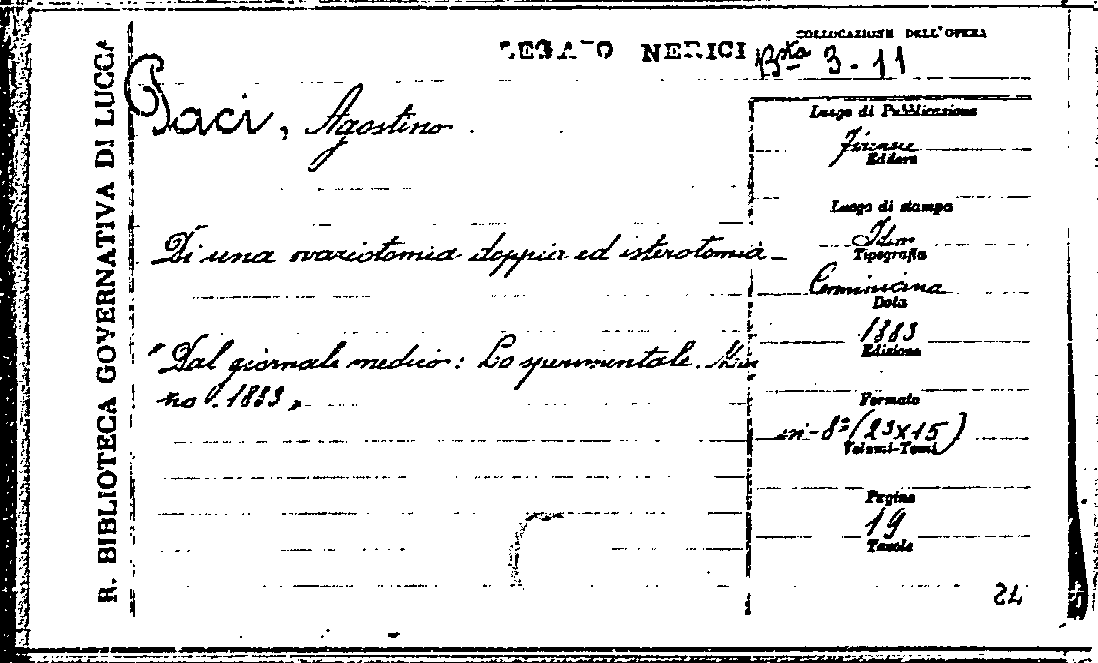 R. BIBLIOTECA GOVERNATIVA DI LUCCA
LEGATO NERICI
COLLOCAZIONE DELL'OPERA
Bta 3-11
Paci, Agostino.
Luogo di Pubblicazione
Firenze
Editore
Luogo di stampa
Idem
Di una ovariotomia doppia ed isterotomia_
Tipografia
Cenniniana
Data
1883
"Dal giornale medico: Lo sperimentale.
1883"
Edizione
Formato
in-8º (23x15)
Volumi-Tomi
Pagine
19
Tavole